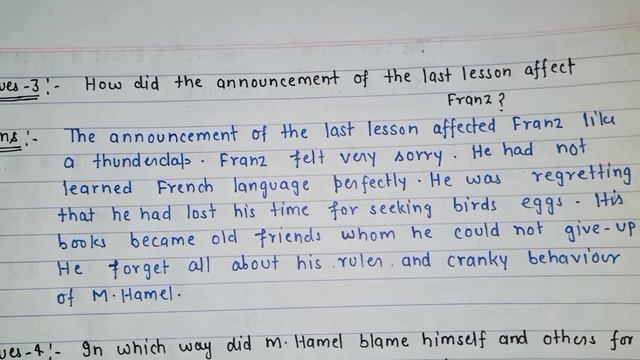 ues-3:- How did the announcement of the last lesson affect
Franz?
ns:- The announcement of the last lesson affected Franz like
a thunderclap. Franz felt very sorry. He had not
learned French language perfectly. He was regretting
that he had lost his time for seeking birds eggs. His
books became old friends whom he could not give-up
He forget all about his ruler and cranky behaviour
of M. Hamel.
ues-4:- In which way did M. Hamel blame himself and others for